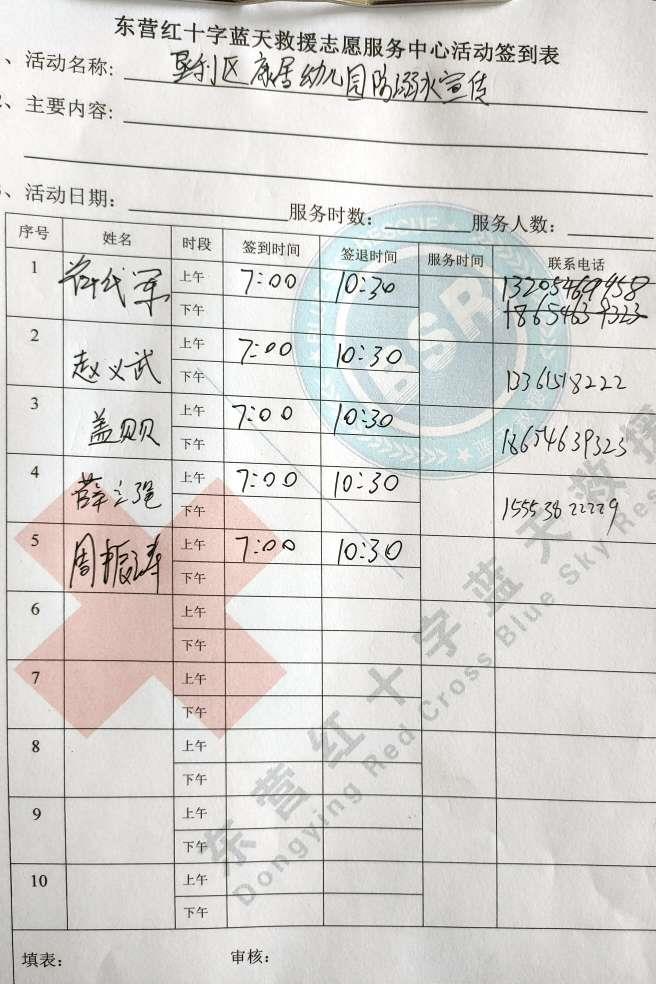 东营红十字蓝天救援志愿服务中心活动签到表
、活动名称: 垦利区康居幼儿园防溺水宣传
、主要内容:
、活动日期: 服务时数: 服务人数:
序号 姓名 时段 签到时间 签退时间 服务时间 联系电话
1 上午 7:00 10:30 13205469958
下午 18654639323
2 赵义武 上午 7:00 10:30
下午 13361518222
3 盖贝贝 上午 7:00 10:30
下午 18654639323
4 薛立强 上午 7:00 10:30
下午 15553822229
5 周振涛 上午 7:00 10:30
下午
6 上午
下午
7 上午
下午
8 上午
下午
9 上午
下午
10 上午
下午
填表: 审核:
BSR
东营红十字蓝天救援
Dongying Red Cross Blue Sky Res